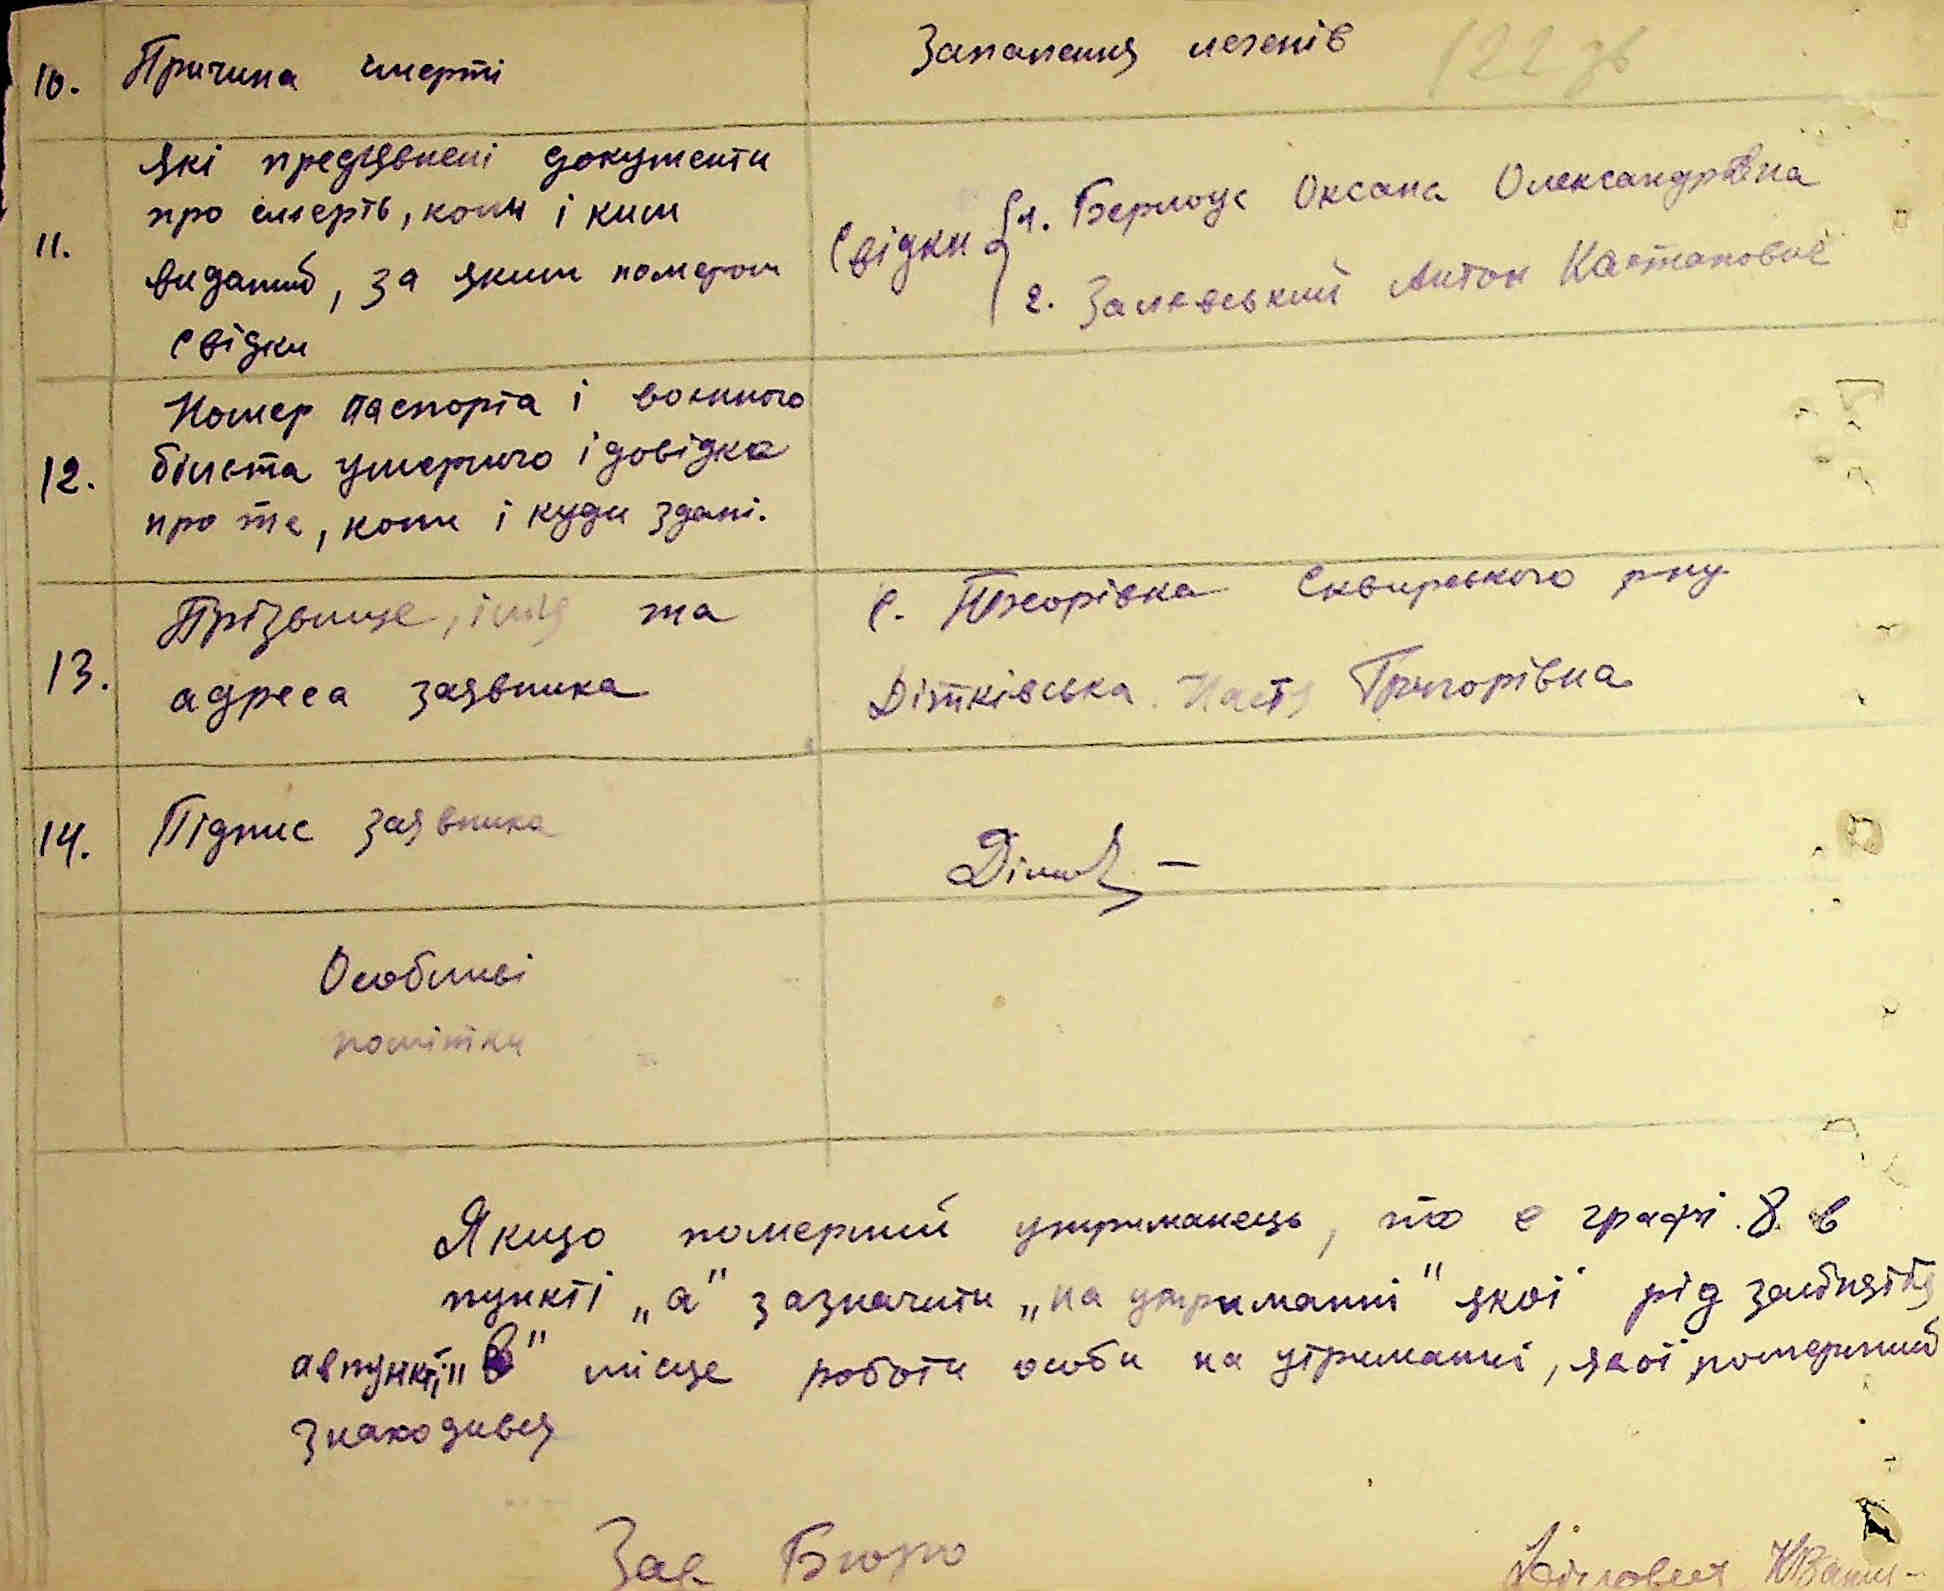 122 зв
10. Причина смерті Запалення легенів
11. які пред'явлені документи
про смерть, коли і ким
виданий, за яким номером
свідки
Свідки 1. Берлоус Оксана Олександрівна
2. Залевський Антон Каетанович
12. Номер паспорта і военного
білета умерлого і довідка
про те, коли і куди здані.
13. Прізвище, імя та
адреса заявника
с. Пжорівка Сквирського р-ну
Дітківська Настя Григорівна
14. Підпис заявника
Особливі
помітки
Якщо померлий утриманець, то в графі 8 в
пункті „а" зазначити „на утриманні" якої рід заняття
а в пункті „в" місце роботи особи на утриманні, якої померлий
знаходився
Зав Бюро